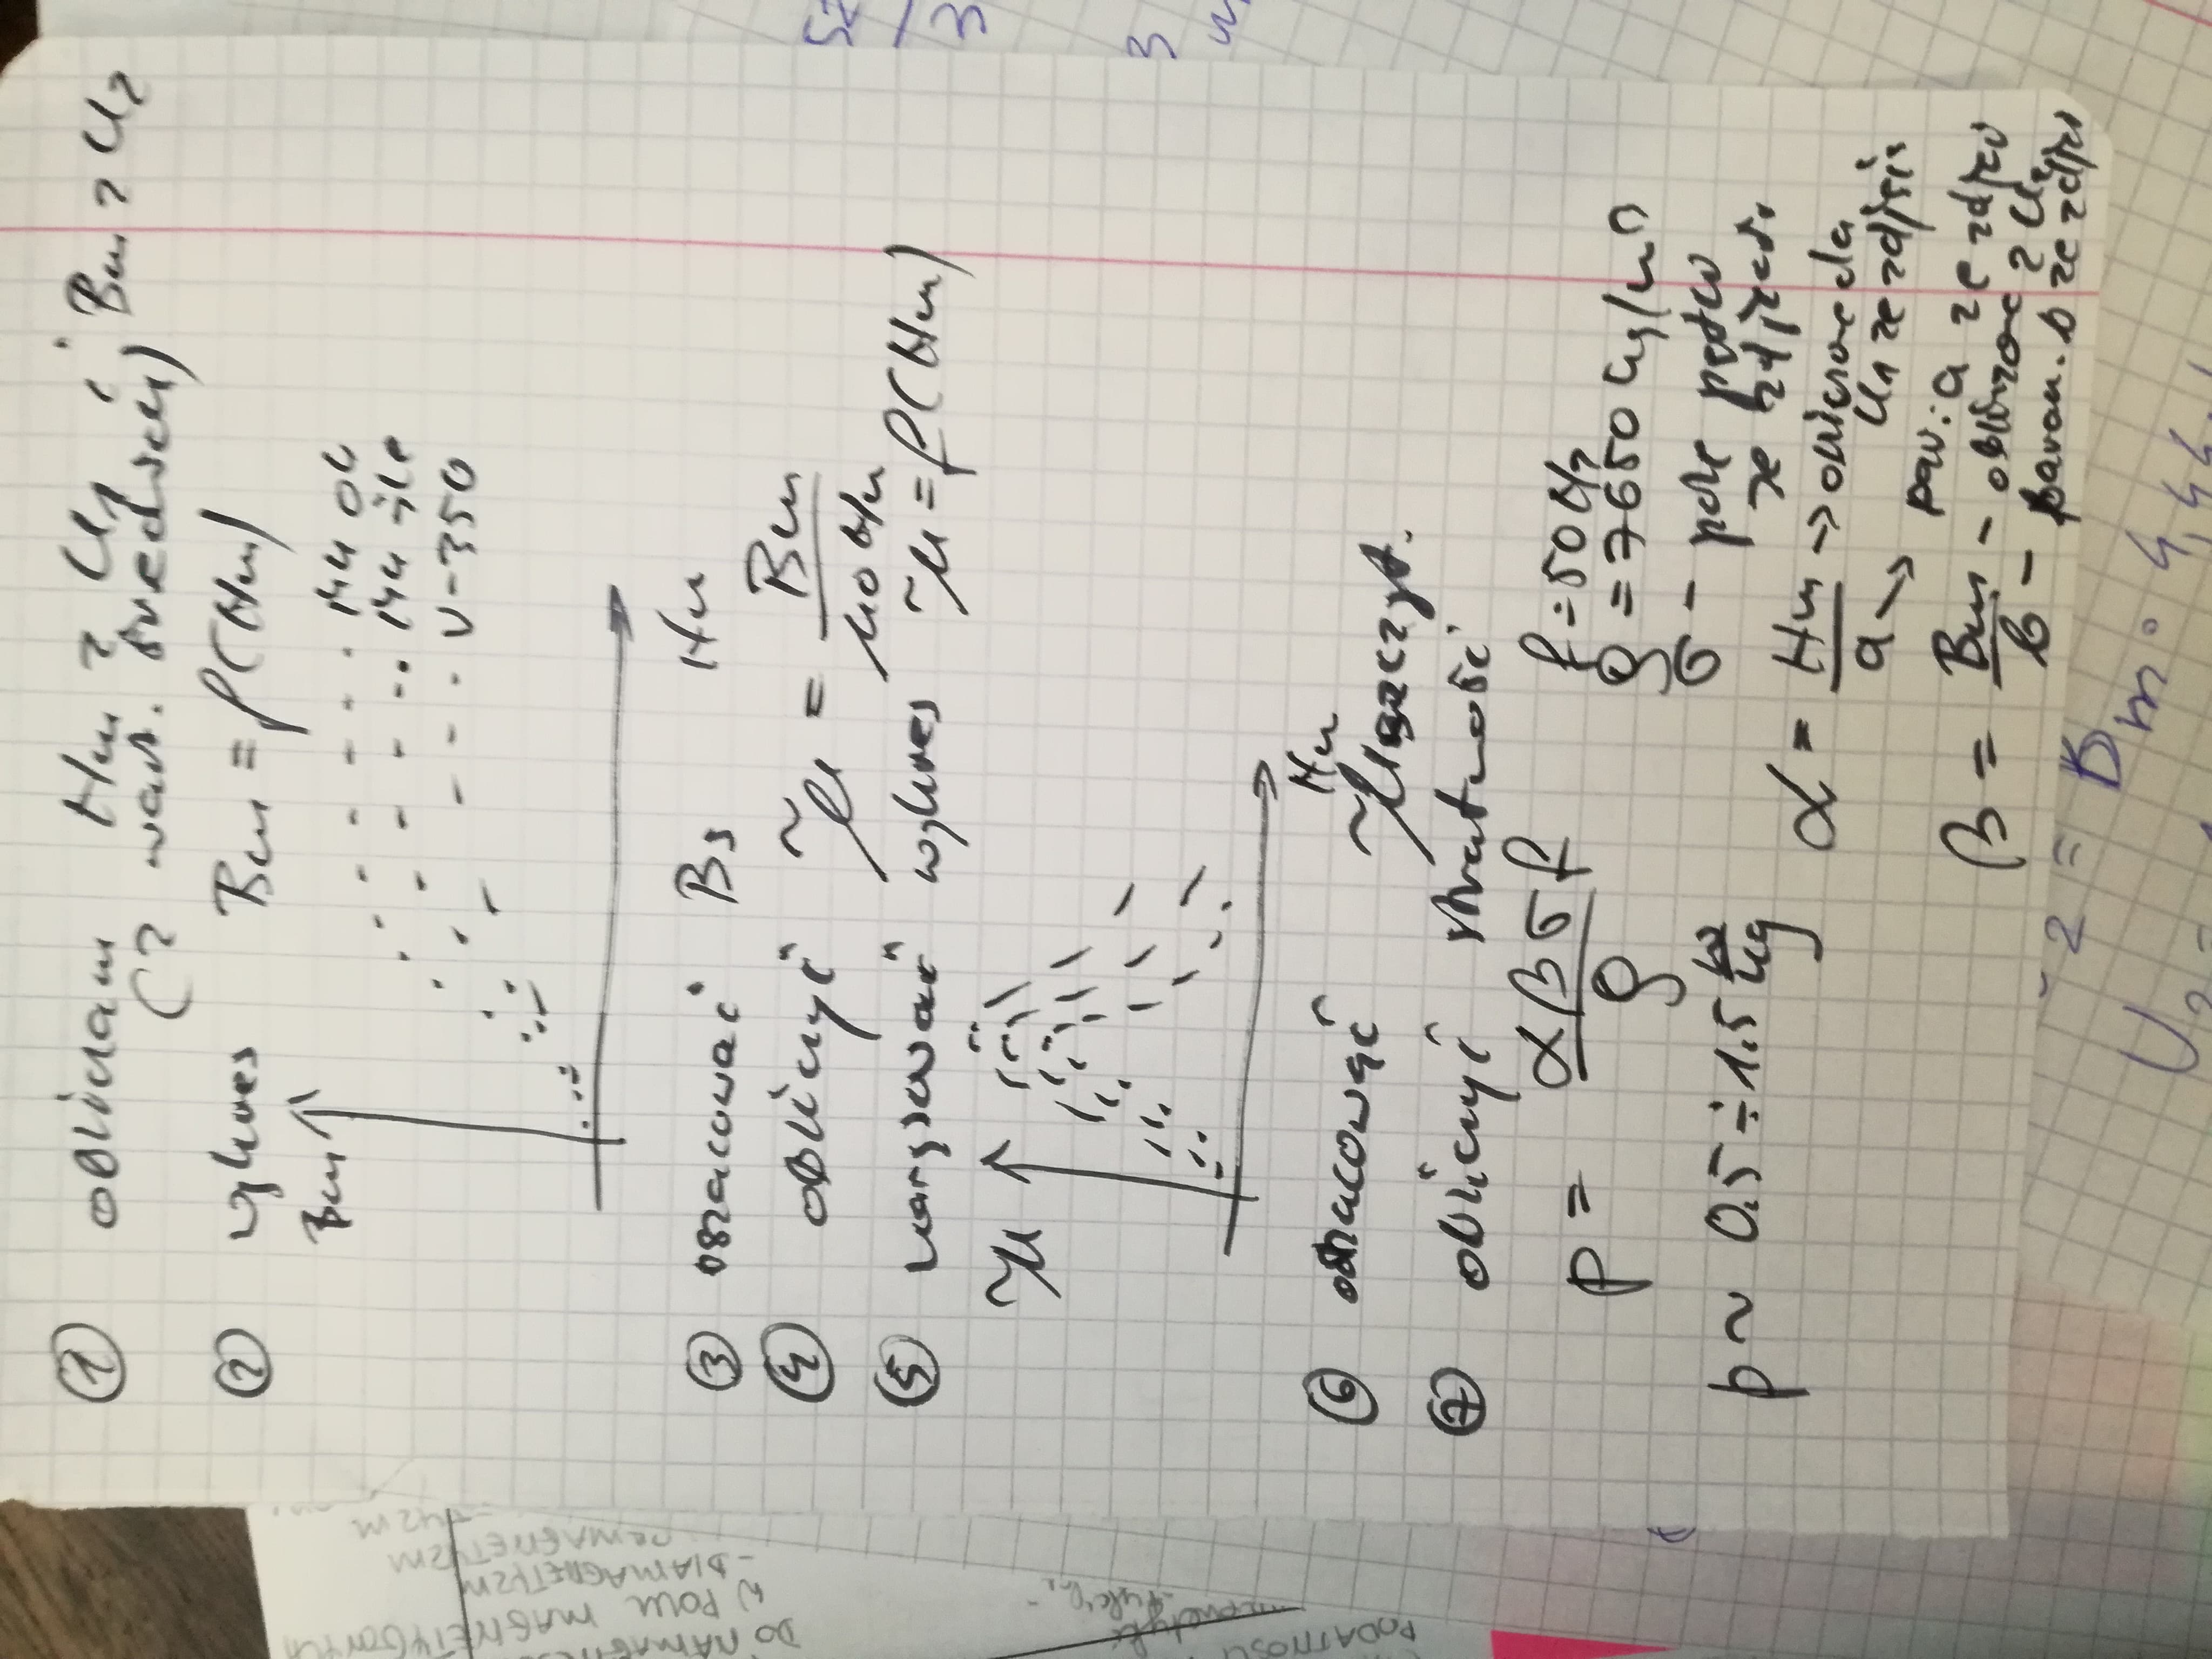 ① obliczam Hm z U1 i Bm z U2
(z wart. średnich)
② wykres Bm = f(Hm)
Bm
M4 ok
M4 źle
V-350
Hm
③ oszacować Bs
④ obliczyć μ̃ = Bm / μ0 Hm
⑤ narysować wykres μ̃ = f(Hm)
μ̃
Hm
⑥ oszacować μ̃ szczyt.
⑦ obliczyć stratność
p = αβσf / ρ
f = 50 Hz
ρ = 7650 kg/m3
σ - pole pętli
ze zdjęcia
p ~ 0.5 ÷ 1.5 W/kg
α = Hm / a
→ obliczone dla
U1 ze zdjęcia
→ par. a ze zdjęć
β = Bm / b
- obliczone z U2
- param. b ze zdjęć
2 = Bm · 4,44
U2 =
DO
W POLU MAGNETYCZNYM
- DIAMAGNETYZM
PODATNOŚCI